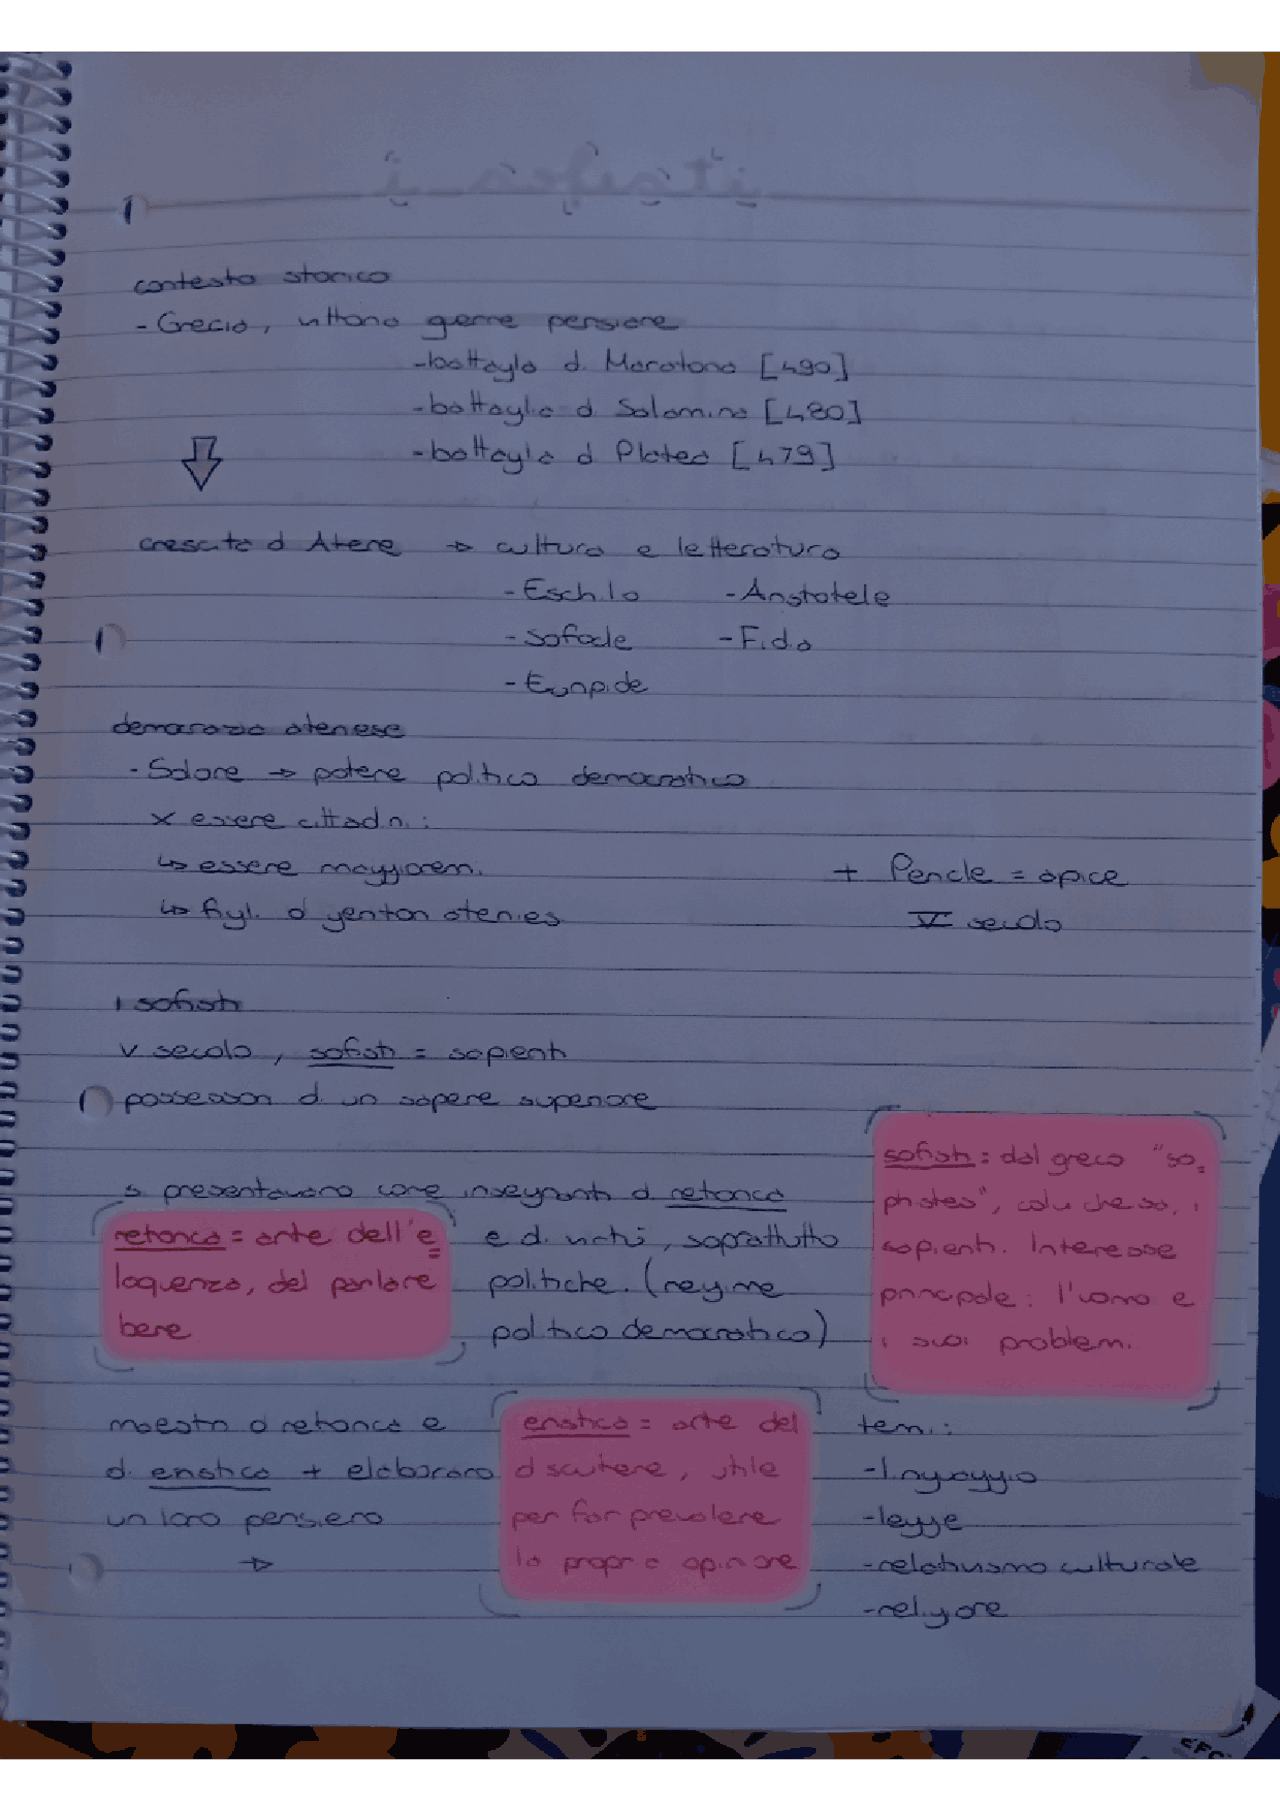 contesto storico
- Grecia, vittoria guerre persiane
- battaglia di Maratona [490]
- battaglia di Salamina [480]
- battaglia di Platea [479]
crescita di Atene → cultura e letteratura
- Eschilo - Aristotele
- Sofocle - Fidia
- Euripide
democrazia ateniese
- Solone → potere politico democratico
x essere cittadini:
↳ essere maggiorenni
↳ figli di genitori ateniesi
+ Pericle = apice
V secolo
i sofisti
V secolo, sofisti = sapienti
possessori di un sapere superiore
si presentavano come insegnanti di retorica
e di virtù, soprattutto
politiche. (regime
politico democratico)
retorica = arte dell'e
loquenza, del parlare
bene
sofisti: dal greco "so
phistes", colui che sa, i
sapienti. Interesse
principale: l'uomo e
i suoi problemi.
maestri di retorica e
di eristica + elaborano
un loro pensiero
→
eristica = arte del
discutere, utile
per far prevalere
la propria opinione
temi:
- linguaggio
- legge
- relativismo culturale
- religione